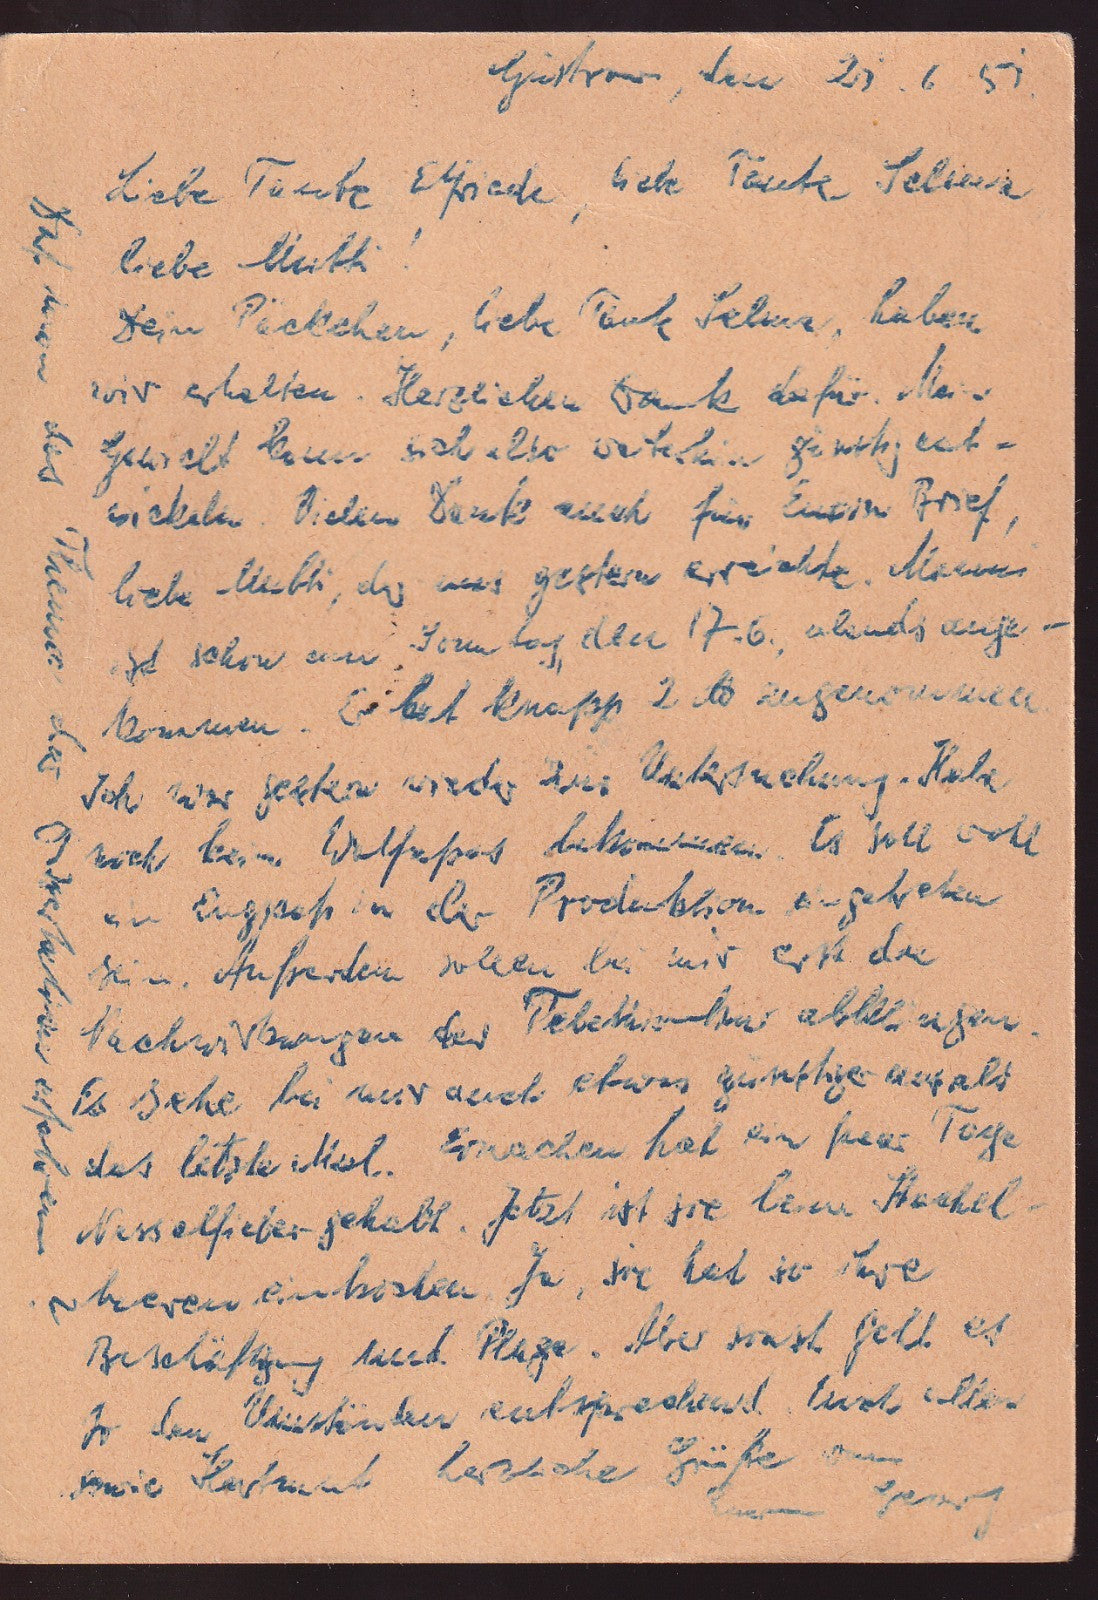 Güstrow, den 21. 6. 51.
Liebe Tante Elfriede, liebe Tante Selma
liebe Mutti!
Dein Päckchen, liebe Tante Selma, haben
wir erhalten. Herzlichen Dank dafür. Mein
Gewicht kann sich also weiterhin günstig ent-
wickeln. Vielen Dank auch für Euern Brief,
liebe Mutti, der uns gestern erreichte.
ist schon am Sonntag, den 17.6., abends ange-
kommen. Er hat knapp 2 ℔ zugenommen.
Ich war gestern wieder zur Untersuchung. Habe
noch kein bekommen. Es soll wohl
ein Engpaß in der Produktion eingetreten
sein. Außerdem sollen bei mir erst die
Nachwirkungen der abklingen.
Es sehe bei mir auch etwas günstiger aus als
das letzte Mal. hat ein paar Tage
Nesselfieber gehabt. Jetzt ist sie beim Stachel-
beeren einkochen. Ja, sie hat so ihre
Beschäftigung und Plage. Aber sonst geht es
ja den Umständen entsprechend. Euch allen
sowie Hartmut herzliche Grüße von
Euerm Georg
Hat man das Thema der erfahren?